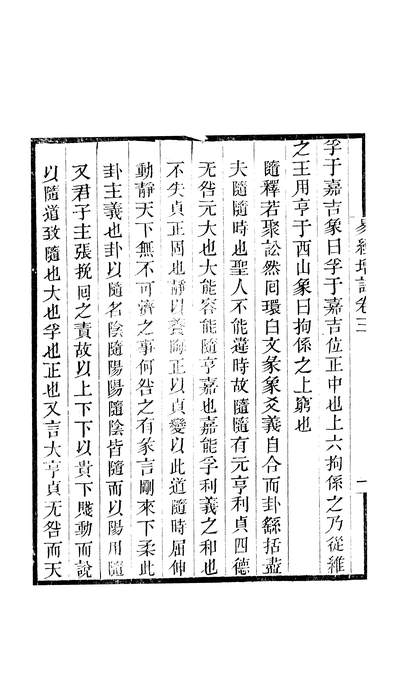 易經增註卷三
一
孚于嘉吉象曰孚于嘉吉位正中也上六拘係之乃從維
之王用亨于西山象曰拘係之上窮也
隨釋若聚訟然囘環白文彖象爻義自合而卦繇括盡
夫隨隨時也聖人不能違時故隨隨有元亨利貞四德
无咎元大也大能容能隨亨嘉也嘉能孚利義之和也
不失貞正固也靜以養晦正以貞變以此道隨時屈伸
動靜天下無不可濟之事何咎之有彖言剛來下柔此
卦主義也卦以隨名陰隨陽陽隨陰皆隨而以陽用隨
又君子主張挽囘之責故以上下下以貴下賤動而說
以隨道致隨也大也孚也正也又言大亨貞无咎而天